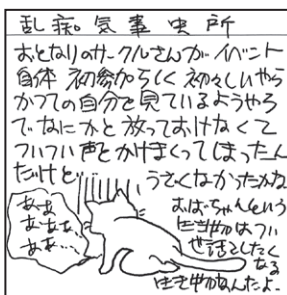 乱痴気事虫所
おとなりのサークルさんがイベント
自体 初参加らしく 初々しいやら
かつての自分を見ているようやら
でなにかと放っておけなくて
ついつい声とかけまくってしまったん
だけど うざくなかったかな
あぁ
あぁぁ
あぁ…
おばちゃんという
生き物はつい
世話としたく
なる
生き物なんだよ…